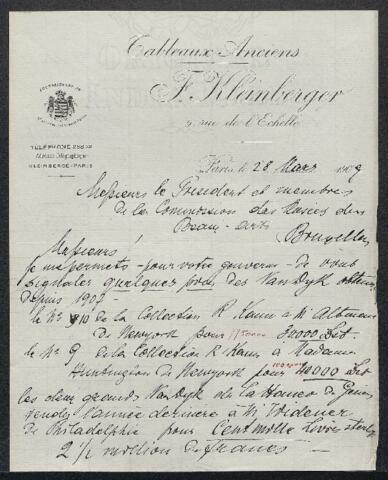 Tableaux Anciens
F. Kleinberger
9, rue de l'Echelle
TÉLÉPHONE
Adresse Télégraphique
KLEINBERGE-PARIS
Paris le 28 Mars 1909
Messieurs le Président et membres
de la Commission des Musées des
Beaux-Arts
Bruxelles
Messieurs
je me permets - pour votre gouverne - de vous
signaler quelques prix des Van Dyk obtenus
depuis 1907 -
le No. 10 de la Collection R Kann a M Altmann
de Newyork pour 30000 Lst.
le No 9 de la Collection R Kann a Madame
Huntington de Newyork pour 40000 Lst
les deux grands Van Dyk de la
vendus l'année dernière a M Widener
de Philadelphie pour Cent mille Livres Sterlg
2 1/2 million de francs -